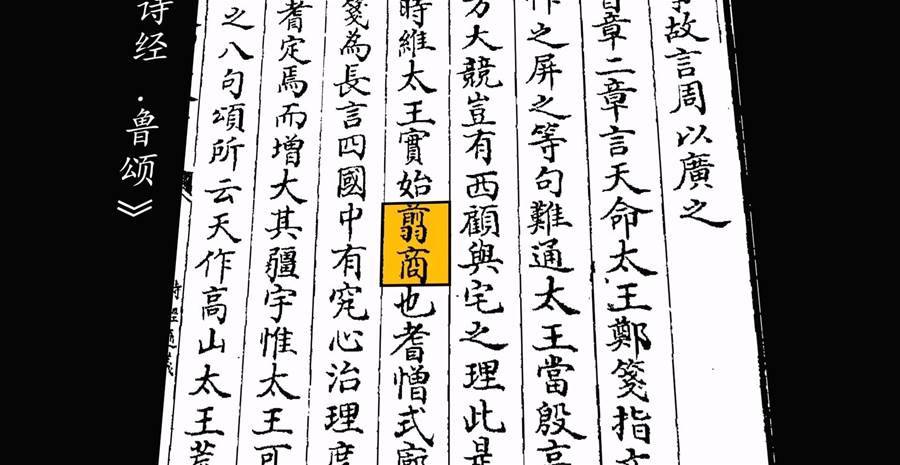 故言周以廣之
章二章言天命太王鄭箋指
作之屏之等句難通太王當殷高
方大競豈有西顧與宅之理此是
時維太王實始翦商也耆憎式廓
箋為長言四國中有究心治理度
耆定焉而增大其疆宇惟太王可
之八句頌所云天作高山太王荒
诗经·鲁颂》